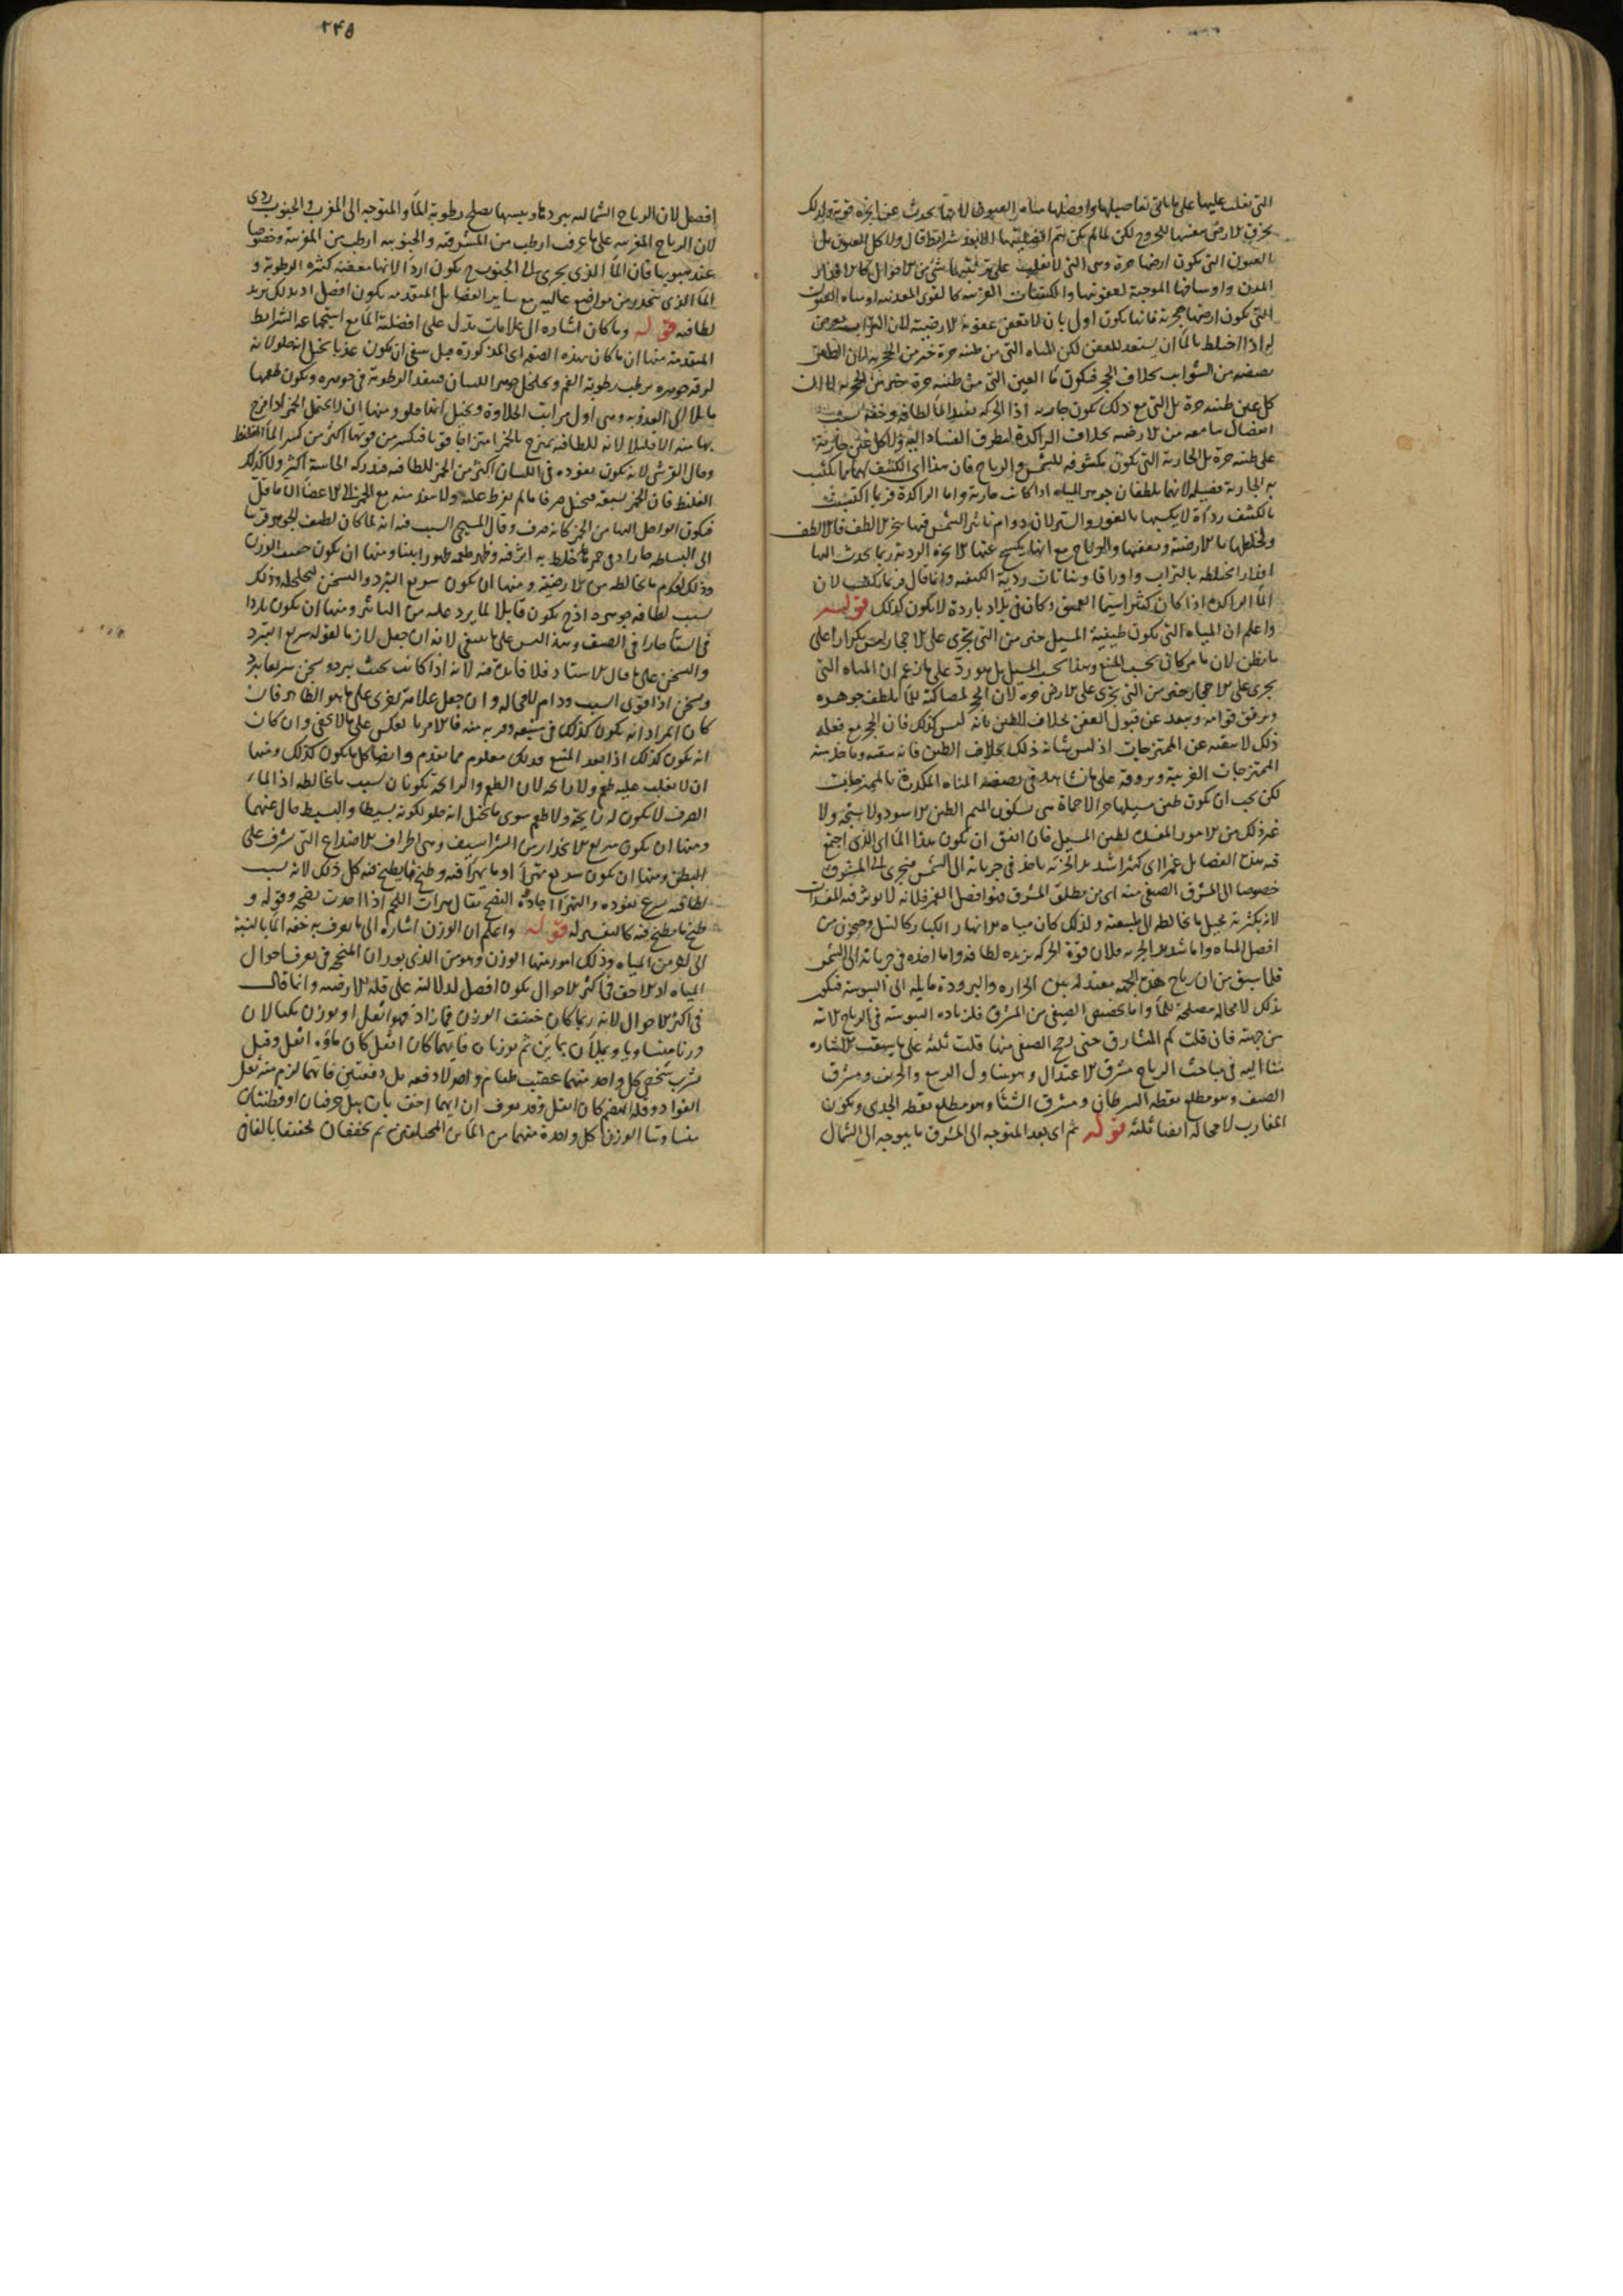 التى تغلب عليها على ما ياتى تفاصيلها وافضلها مياه العيون لانها تحدث عن ابخرة قوية ولذلك
يخرق الارض بعنفها للخروج لكن لما لم يكن يتم افضليتها الا بعد شرايط قال ولا كل العيون بل
العيون التى يكون ارضها حرة وهى التى لا يغلب على تربتها شى من الاحوال كالاقذار
التى يكون ارضها حجرية فانها يكون اولى بان لا تعفن عفونة الارضية لان التراب
اذا اختلط بالما ان يستعد للعفن لكن المياه التى من طينة حرة خير من الحجرية لان الطين
بخلاف الحجر فيكون ما العين التى من طينة حرة خير من الحجرية
كل عين طينه حرة بل التى مع ذلك يكون جارية اذا الحركة تفيد الما لطافة وخفة
على طينه حرة بل الجارية التى يكون مكشوفة للشمس والرياح فان هذا اى الكشف
به الجارية فضيلة لانهما يلطفان جوهر المياه اذا كانت جارية واما الراكدة فربما اكتسبت
بالكشف رداة لا يكسبها بالغور والستر لان دوام تاثير الشمس فيها يبخر الالطف فالالطف
الما الراكدة اذا كان كثيرا سيما العميق وكان فى بلاد باردة لا يكون كذلك قوله
واعلم ان المياه التى يكون طينية المسيل خير من التى يجرى على الاحجار ليس تكرارا على
ما يظن لان ما مر كان بحسب المنبع وهذا بحسب المسيل بل هو رد على من زعم ان المياه التى
يجرى على الاحجار خير من التى يجرى على الارض حرة لان الحجر لمصاكته للما يلطف جوهره
ويرقق قوامه ويبعد عن قبول العفن بخلاف الطين بانه ليس كذلك فان الحجر مع فعله
ذلك لا ينقيه عن الممتزجات اذ ليس شانه ذلك بخلاف الطين فانه ينقيه وياخذ منه
الممتزجات الغريبة ويروقه على ما يشاهد فى تصفية المياه المكدرة بالممتزجات
لكن يجب ان يكون طين مسيلها حرا لا حماة هى بسكون الميم الطين الاسود ولا سبخة ولا
غير ذلك من الامور المفسدة لطين المسيل فان اتفق ان يكون هذا الما اى الذى اجتمع
فيه هذه الفضايل غمرا اى كثيرا شديد الجرية ياخذ فى جريانه الى الشمس فيجرى الى المشرق
خصوصا الى المشرق الصيفى منه اى من مطلق المشرق فهو افضل اما الغمر فلانه لا يوثر فيه المفسدات
لانه بكثرته يحيل ما خالطه الى طبيعته ولذلك كان مياه الانهار الكبار كالنيل وجيحون من
افضل المياه واما شديد الجرية فلان قوة الحركة يزيده لطافة واما اخذه فى جريانه الى الشمس
فلما سبق من ان رياح هذه الجهة معتدلة بين الحرارة والبرودة مايلة الى اليبوسة فيكون
ذلك لا محالة مصلحة للما واما تخصيص الصيفى من المشرق فلزيادة اليبوسة فى الرياح الاتية
من جهته فان قلت كم المشارق حتى رجح الصيفى منها قلت ثلثة على ما سبقت الاشارة
منا اليه فى مباحث الرياح مشرق الاعتدال وهو مشرق اول الربيع والخريف ومشرق
الصيف وهو مطلع نقطه السرطان ومشرق الشتا وهو مطلع نقطه الجدى ويكون
المغارب لا محالة ايضا ثلثة قوله ثم اى بعد المتوجه الى المشرق ما يتوجه الى الشمال
٢٤٥
افضل لان الرياح الشماليه ببردها ويبسها يصلح رطوبة الما والمتوجه الى المغرب والجنوب ردى
لان الرياح المغربيه على ما عرف ارطب من المشرقية والجنوبيه ارطب من المغربية وخصوصا
عند هبوبها فان الما الذى يجرى الى الجنوب ح يكون اردا لانها معفنه كثيرة الرطوبة و
الما الذى ينحدر من مواضع عالية مع ساير الفضايل المتقدمه يكون افضل اذ بذلك يزيد
لطافته قوله وما كان اشاره الى علامات تدل على افضلية الما مع استجماعه الشرايط
المتقدمة منها ان ما كان بهذه الصفه اى المذكورة قبل ينبغى ان يكون عذبا يخيل انه حلو لانه
لرقة جوهره يرطب رطوبة الفم ويخلخل جوهر اللسان فينفذ الرطوبة فى جوهره ويكون طعمها
مايلا الى العذوبه وهى اول مراتب الحلاوة ويخيل انها حلو ومنها ان لا يحتمل الخمر اذا مزج
بها منه الا قليلا لانه للطافته يمتزج بالخمر امتزاجا قويا فيكسر من قوتها اكثر من كسر الما الغليظ
وقال القرشى لانه يكون نفوذه فى اللسان اكثر من الخمر للطافته فيدركه الحاسة اكثر ولا كذلك
الغليظ فان الخمر يسبقه فيخيل صرفا ما لم يفرط عليه ولا ينفذ منه مع الخمر الى الاعضا الا ما قل
فيكون الواصل اليها من الخمر كانه صرف وقال المسيحى السبب فيه انه لما كان لطيف الجوهر قريبا
وذلك لعدم ما يخالطه من الارضية ومنها ان يكون سريع التبرد والتسخن لتخلخله وذلك
بسبب لطافه جوهره اذ ح يكون قابلا لما يرد عليه من التاثير ومنها ان يكون باردا
فى الشتا حارا فى الصيف وهذا ليس على ما ينبغى لانه ان جعل لازما لقوله سريع التبرد
والتسخن على ما قال الاستاد فلا فايدة فيه لانه اذا كانت بحيث يبرد ويسخن سريعا يبرد
ويسخن اذا قوى السبب ودام لا محالة وان جعل علامة اخرى على ما هو الظاهر فان
كان المراد انه يكون كذلك فى منبعه وقربه منه فالامر بالعكس على ما لا يخفى وان كان
انه يكون كذلك اذا بعد المنبع فذلك معلوم مما تقدم وايضا كل ما يكون كذلك ومنها
ان لا يغلب عليه طعم ولا رايحة لان الطعم والرايحة يكونان بسبب ما يخالطه اذ الما
الصرف لا يكون له رايحة ولا طعم سوى ما يخيل انه حلو لكونه بسيطا والبسيط خال عنهما
ومنها ان يكون سريع الانحدار من الشراسيف وهى اطراف الاضلاع التى تشرف على
البطن ومنها ان يكون سريع تهرى ما يهرا فيه وطبخ ما يطبخ فيه كل ذلك لانه بسبب
لطافته يسرع نفوذه والتهرا اجادة النضج يقال هرات اللحم اذا اجدت نضجه وقوله و
طبخ ما يطبخ فيه كالتفسير له قوله واعلم ان الوزن اشاره الى ما يعرف به خفه الما بالنسبة
الى غيره من المياه وذلك امور منها الوزن وهو من الدستورات المنجحة فى تعرف احوال
المياه اذ الاخف فى اكثر الاحوال يكون افضل لدلالته على قلة الارضيه وانما قال
فى اكثر الاحوال لانه ربما كان خفيف الوزن فما زاد فهو اثقل او يوزن مكيالان
وزنا متساويا ويملان بماين ثم يوزنان فايهما كان اثقل كان ماؤه اثقل وقيل
يشرب شخص كل واحد منهما عقيب طعام واحد لا دفعه بل دفعتين فايهما لزم منه ثقل
الفواد وقلة الهضم كان اثقل وقد يعرف ان ايهما اخف بان يبل خرقتان او قطنتان
متساويتا الوزن كل واحدة منهما من الماين المختلفين ثم يجففان تجفيفا بالغا